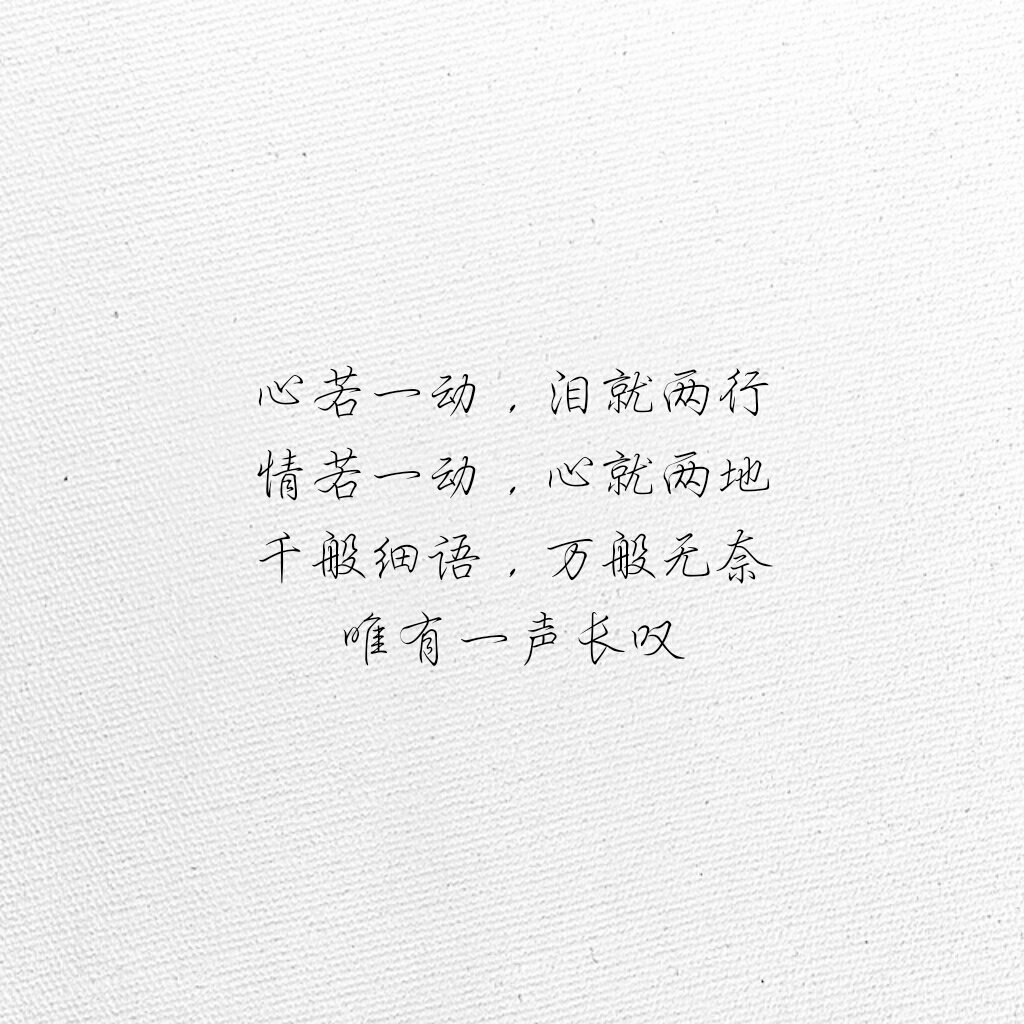 心若一动，泪就两行
情若一动，心就两地
千般细语，万般无奈
唯有一声长叹